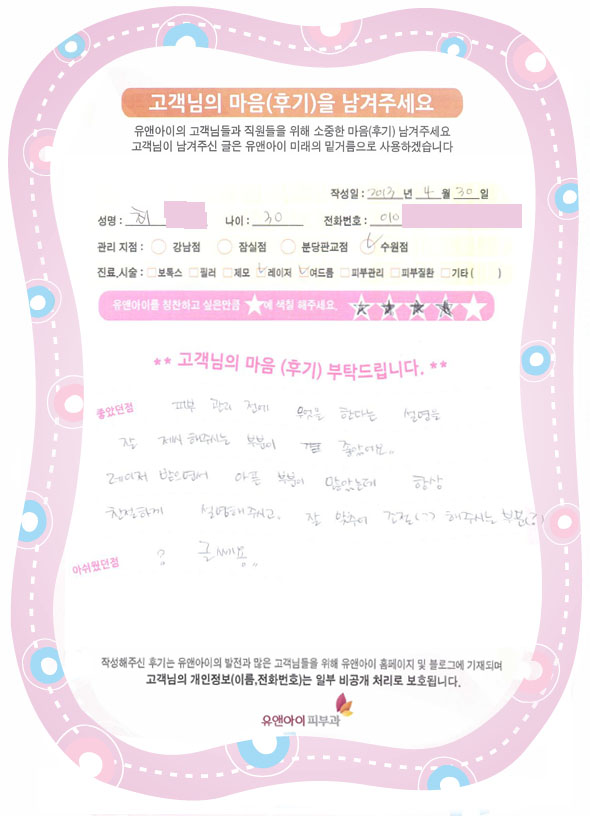 고객님의 마음(후기)을 남겨주세요
유앤아이의 고객님들과 직원들을 위해 소중한 마음(후기) 남겨주세요
고객님이 남겨주신 글은 유앤아이 미래의 밑거름으로 사용하겠습니다
작성일 : 2013 년 4 월 30 일
성명 : 최 나이 : 30 전화번호 : 010
관리 지점 : 강남점 잠실점 분당판교점 수원점
진료,시술 : 보톡스 필러 제모 레이저 여드름 피부관리 피부질환 기타 ( )
유앤아이를 칭찬하고 싶은만큼 ★에 색칠 해주세요.
** 고객님의 마음 (후기) 부탁드립니다. **
좋았던점 피부 관리 전에 무엇을 한다는 설명을
잘 해주시는 부분이 좋았어요.
레이저 받으면서 아픈 부분이 많았는데 항상
친절하게 설명해주시고, 잘 맞추어 조절 해주시는 부분(?)
아쉬웠던점 음 글쎄용..
작성해주신 후기는 유앤아이의 발전과 많은 고객님들을 위해 유앤아이 홈페이지 및 블로그에 기재되며
고객님의 개인정보(이름,전화번호)는 일부 비공개 처리로 보호됩니다.
유앤아이피부과